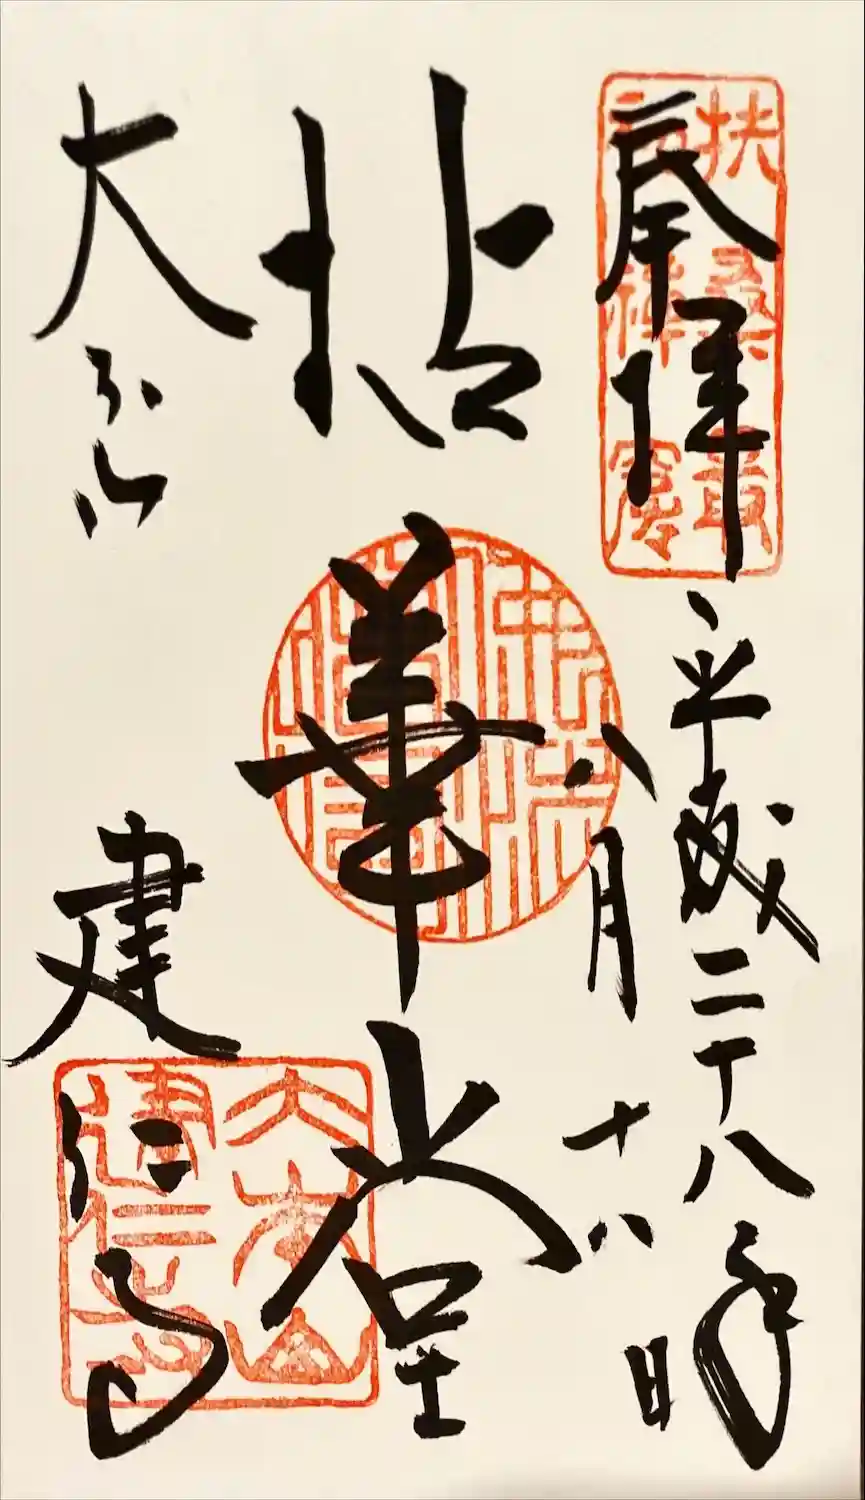 奉拝
平成二十八年
八月十八日
拈華堂
大本山
建仁寺
扶桑最
初禅窟
大本山
建仁寺